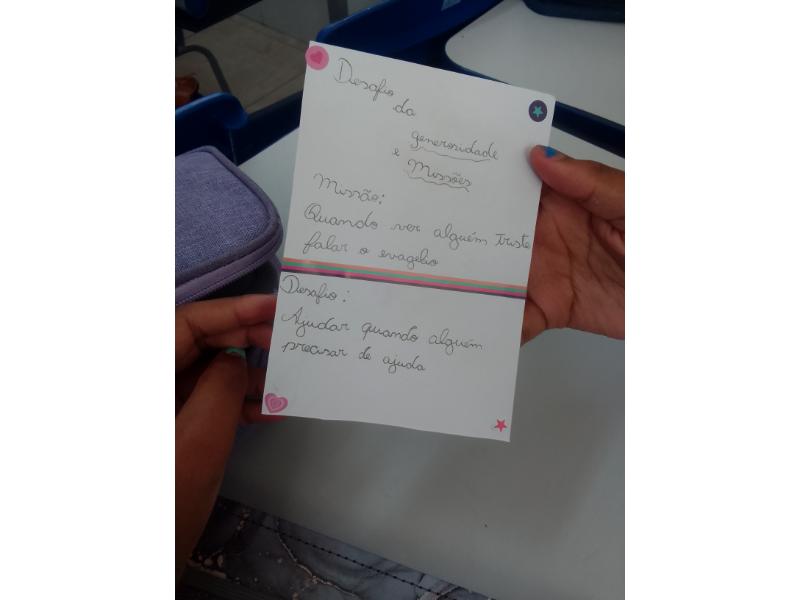 Desafio
da
generosidade
e
Missões
Missão:
Quando ver alguém triste
falar o evagelio
Desafio:
Ajudar quando alguém
precisar de ajuda